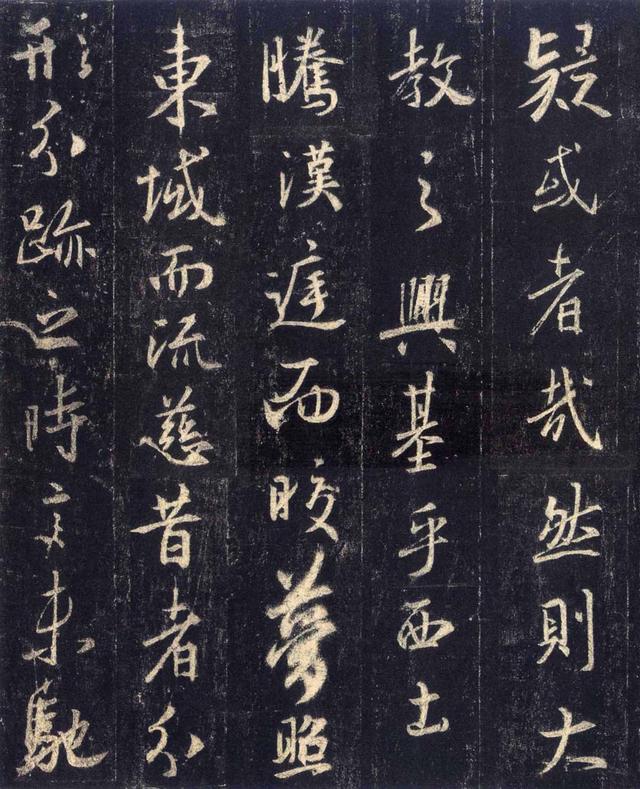 疑或者哉然則大
教之興基乎西土
騰漢庭而皎夢照
東域而流慈昔者分
形分跡之時言未馳